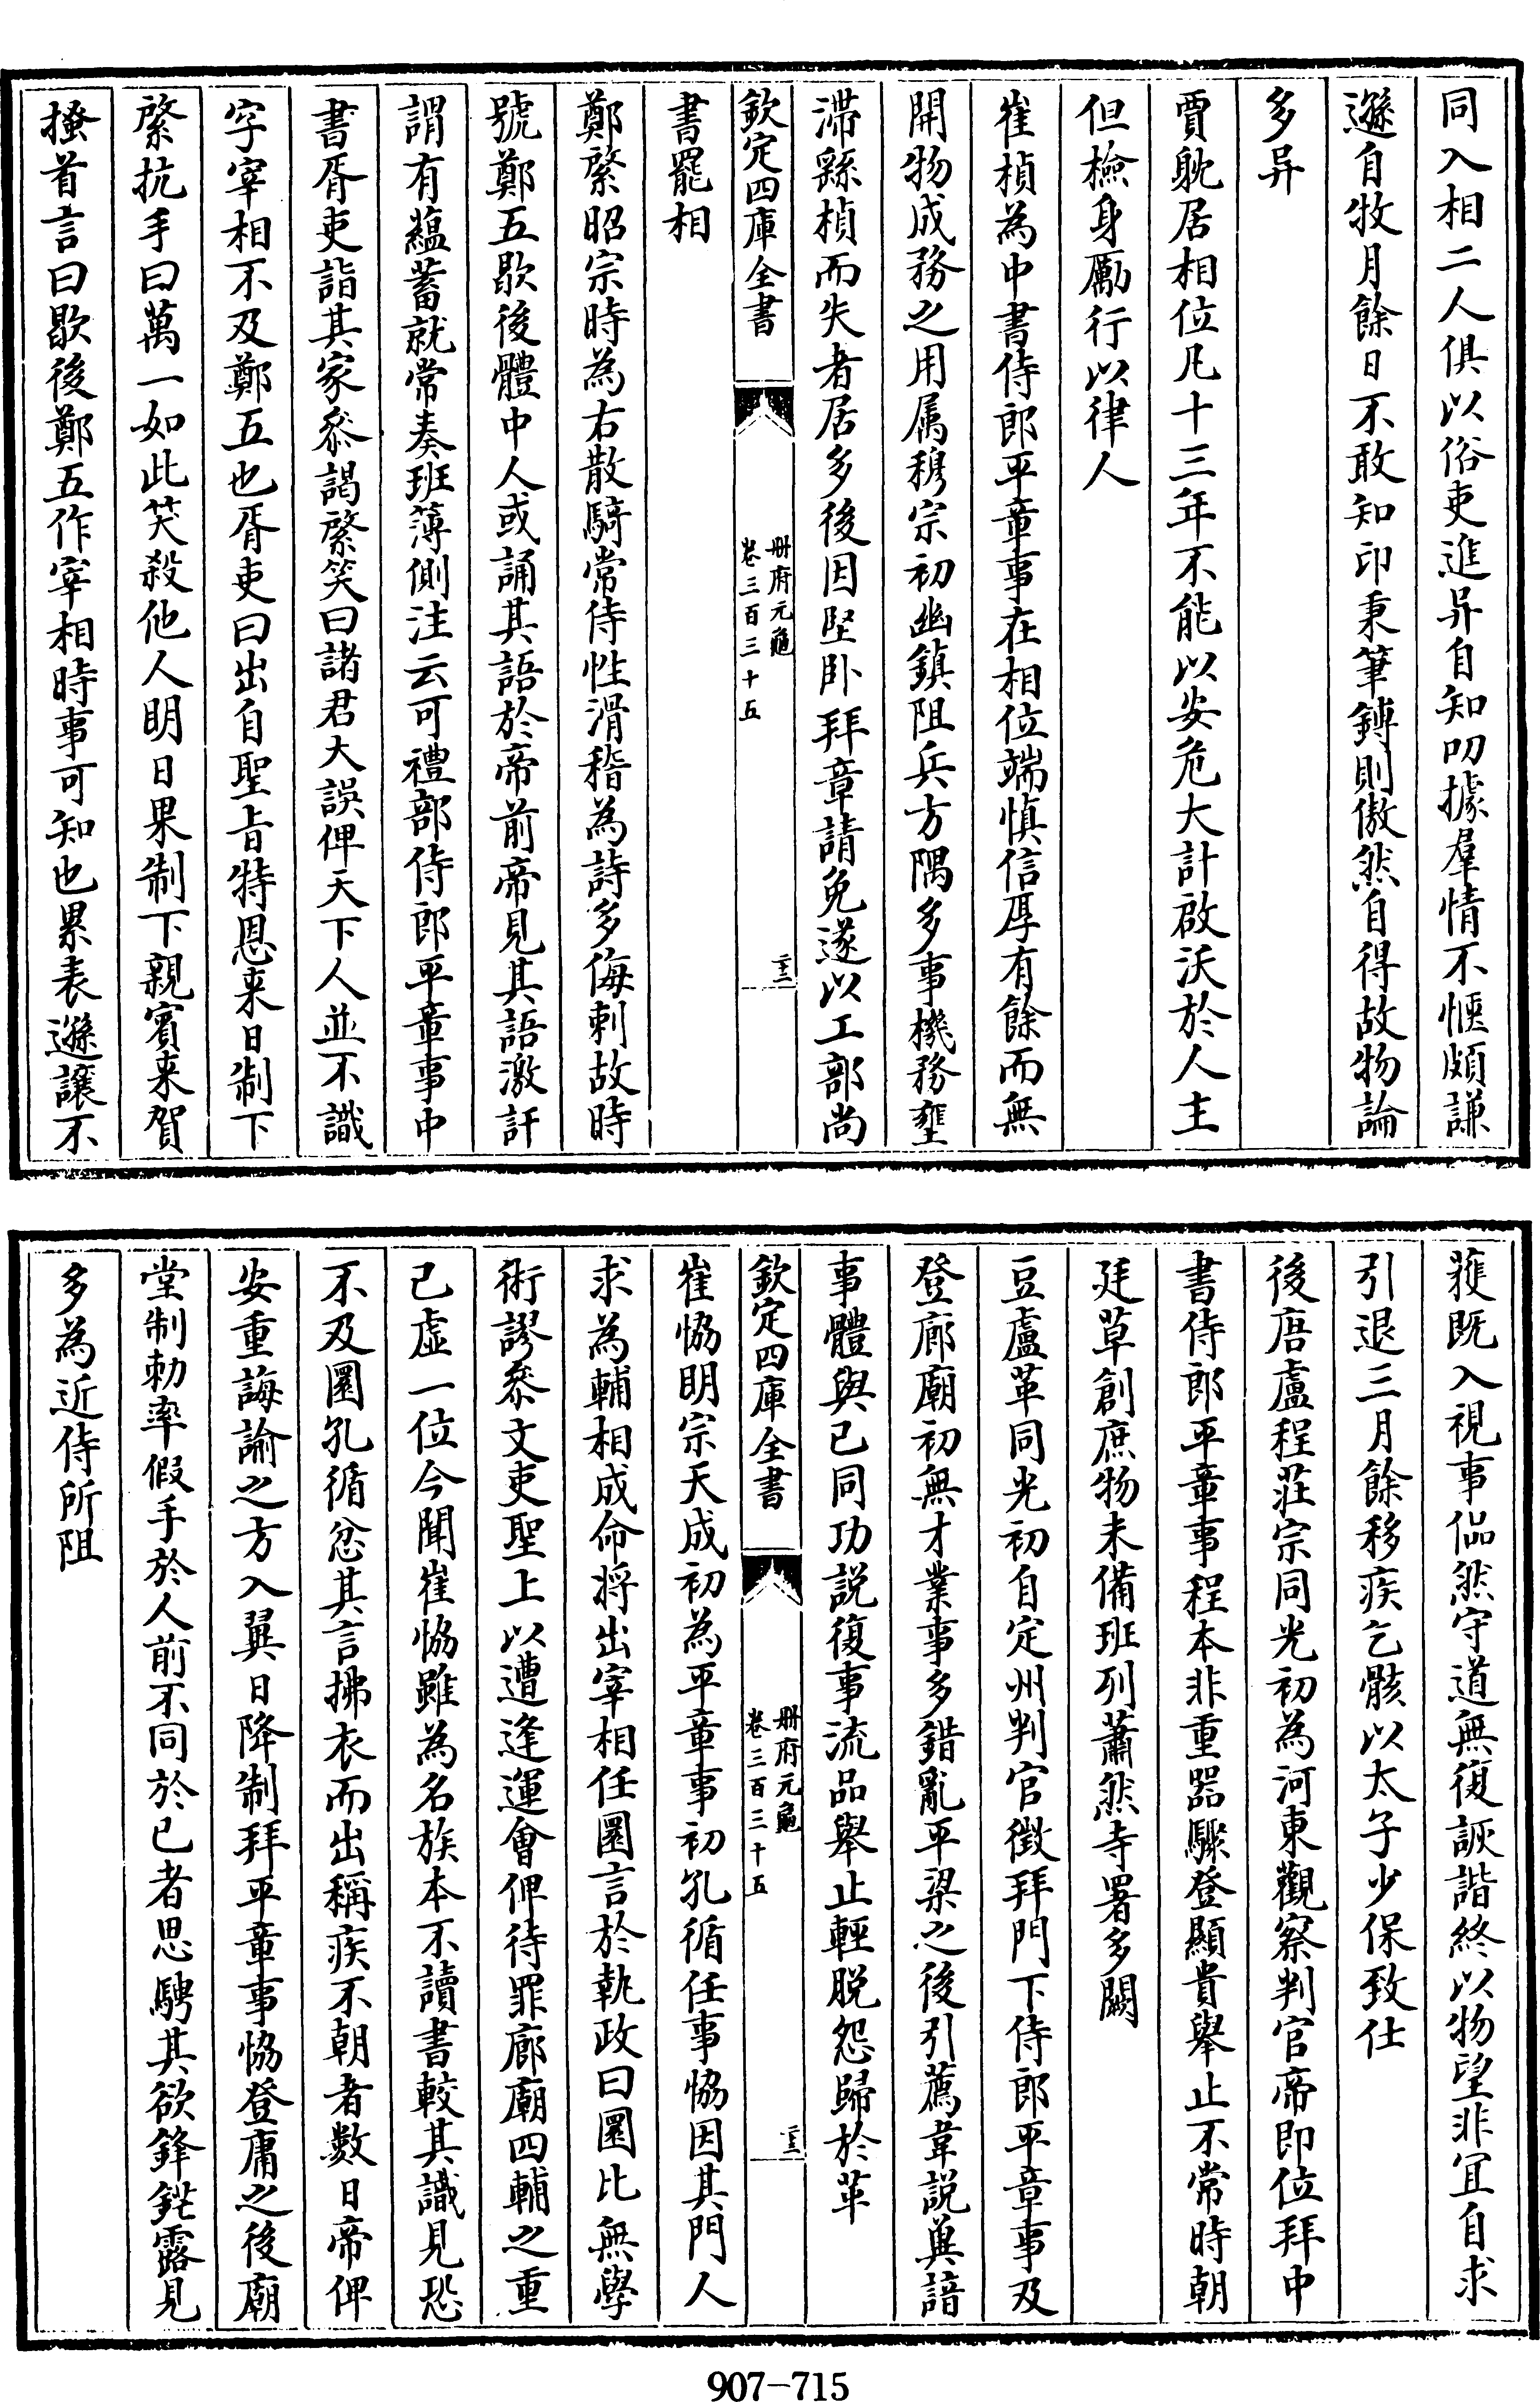 同入相二人俱以俗吏進异自知叨據羣情不愜頗謙
遜自牧月餘日不敢知印秉筆鎛則傲然自得故物論
多异
賈躭居相位凡十三年不能以安危大計啟沃於人主
但檢身勵行以律人
崔楨為中書侍郎平章事在相位端慎信厚有餘而無
開物成務之用属穆宗初幽鎮阻兵方隅多事機務壅
滯繇楨而失者居多後因堅卧拜章請免遂以工部尚
欽定四庫全書
册府元龜
卷三百三十五
二十二
書罷相
鄭綮昭宗時為右散騎常侍性滑稽為詩多侮刺故時
號鄭五歇後體中人或誦其語於帝前帝見其語激訐
謂有蘊蓄就常奏班薄側注云可禮部侍郎平章事中
書胥吏詣其家叅謁綮笑曰諸君大誤俾天下人並不識
字宰相不及鄭五也胥吏曰出自聖旨特恩来日制下
綮抗手曰萬一如此笑殺他人明日果制下親賓来賀
搔首言曰歇後鄭五作宰相時事可知也累表遜讓不
獲既入視事侃然守道無復詼諧終以物望非宜自求
引退三月餘移疾乞骸以太子少保致仕
後唐盧程莊宗同光初為河東觀察判官帝即位拜中
書侍郎平章事程本非重器驟登顯貴舉止不常時朝
廷草創庶物未備班列蕭然寺署多闕
豆盧革同光初自定州判官徵拜門下侍郎平章事及
登廊廟初無才業事多錯亂平梁之後引薦韋説冀諳
事體與已同功説復事流品舉止輕脱怨歸於革
欽定四庫全書
册府元龜
卷三百三十五
二十三
崔恊明宗天成初為平章事初孔循任事恊因其門人
求為輔相成命將出宰相任圜言於執政曰圜比無學
術謬叅文吏聖上以遭逢運會俾待罪廊廟四輔之重
已虚一位今聞崔恊雖為名族本不讀書較其識見恐
不及圜孔循忿其言拂衣而出稱疾不朝者數日帝俾
安重誨諭之方入翼日降制拜平章事恊登庸之後廟
堂制勅率假手於人前不同於已者思騁其欲鋒鋩露見
多為近侍所阻
907-715